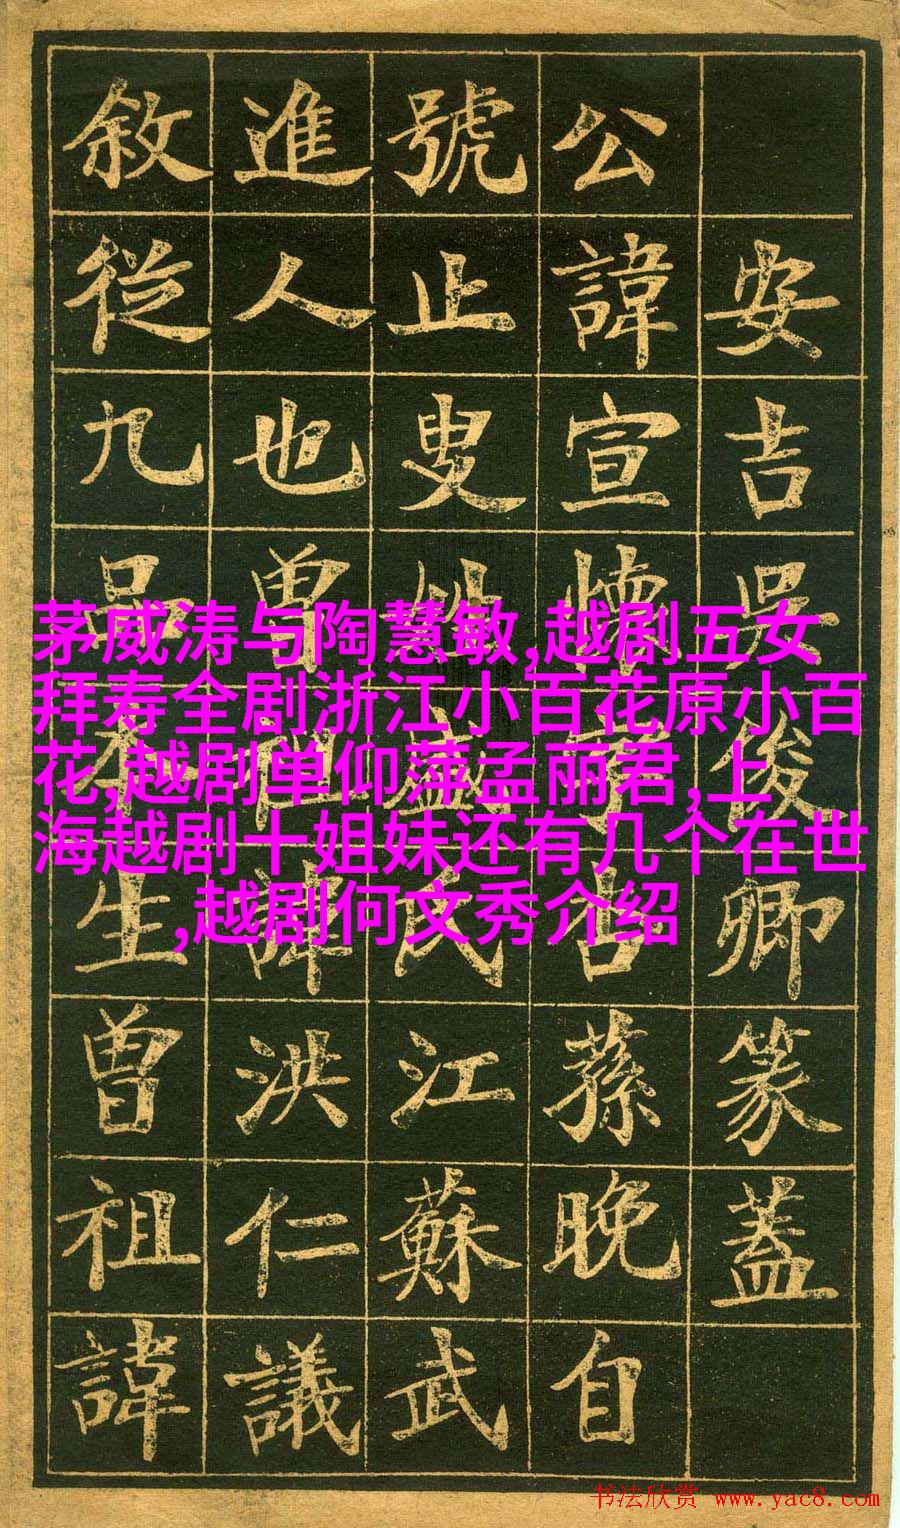 安吉吳俊卿篆蓋
公諱宣懷字杏蓀晚自
號止叟姓盛氏江蘇武
進人也曾祖諱洪仁議
敘從九品本生曾祖諱
茅威涛与陶慧敏,越剧五女
拜寿全剧浙江小百花原小百
花,越剧单仰萍孟丽君,上
海越剧十姐妹还有几个在世
,越剧何文秀介绍
书法欣赏 www.yac8.com